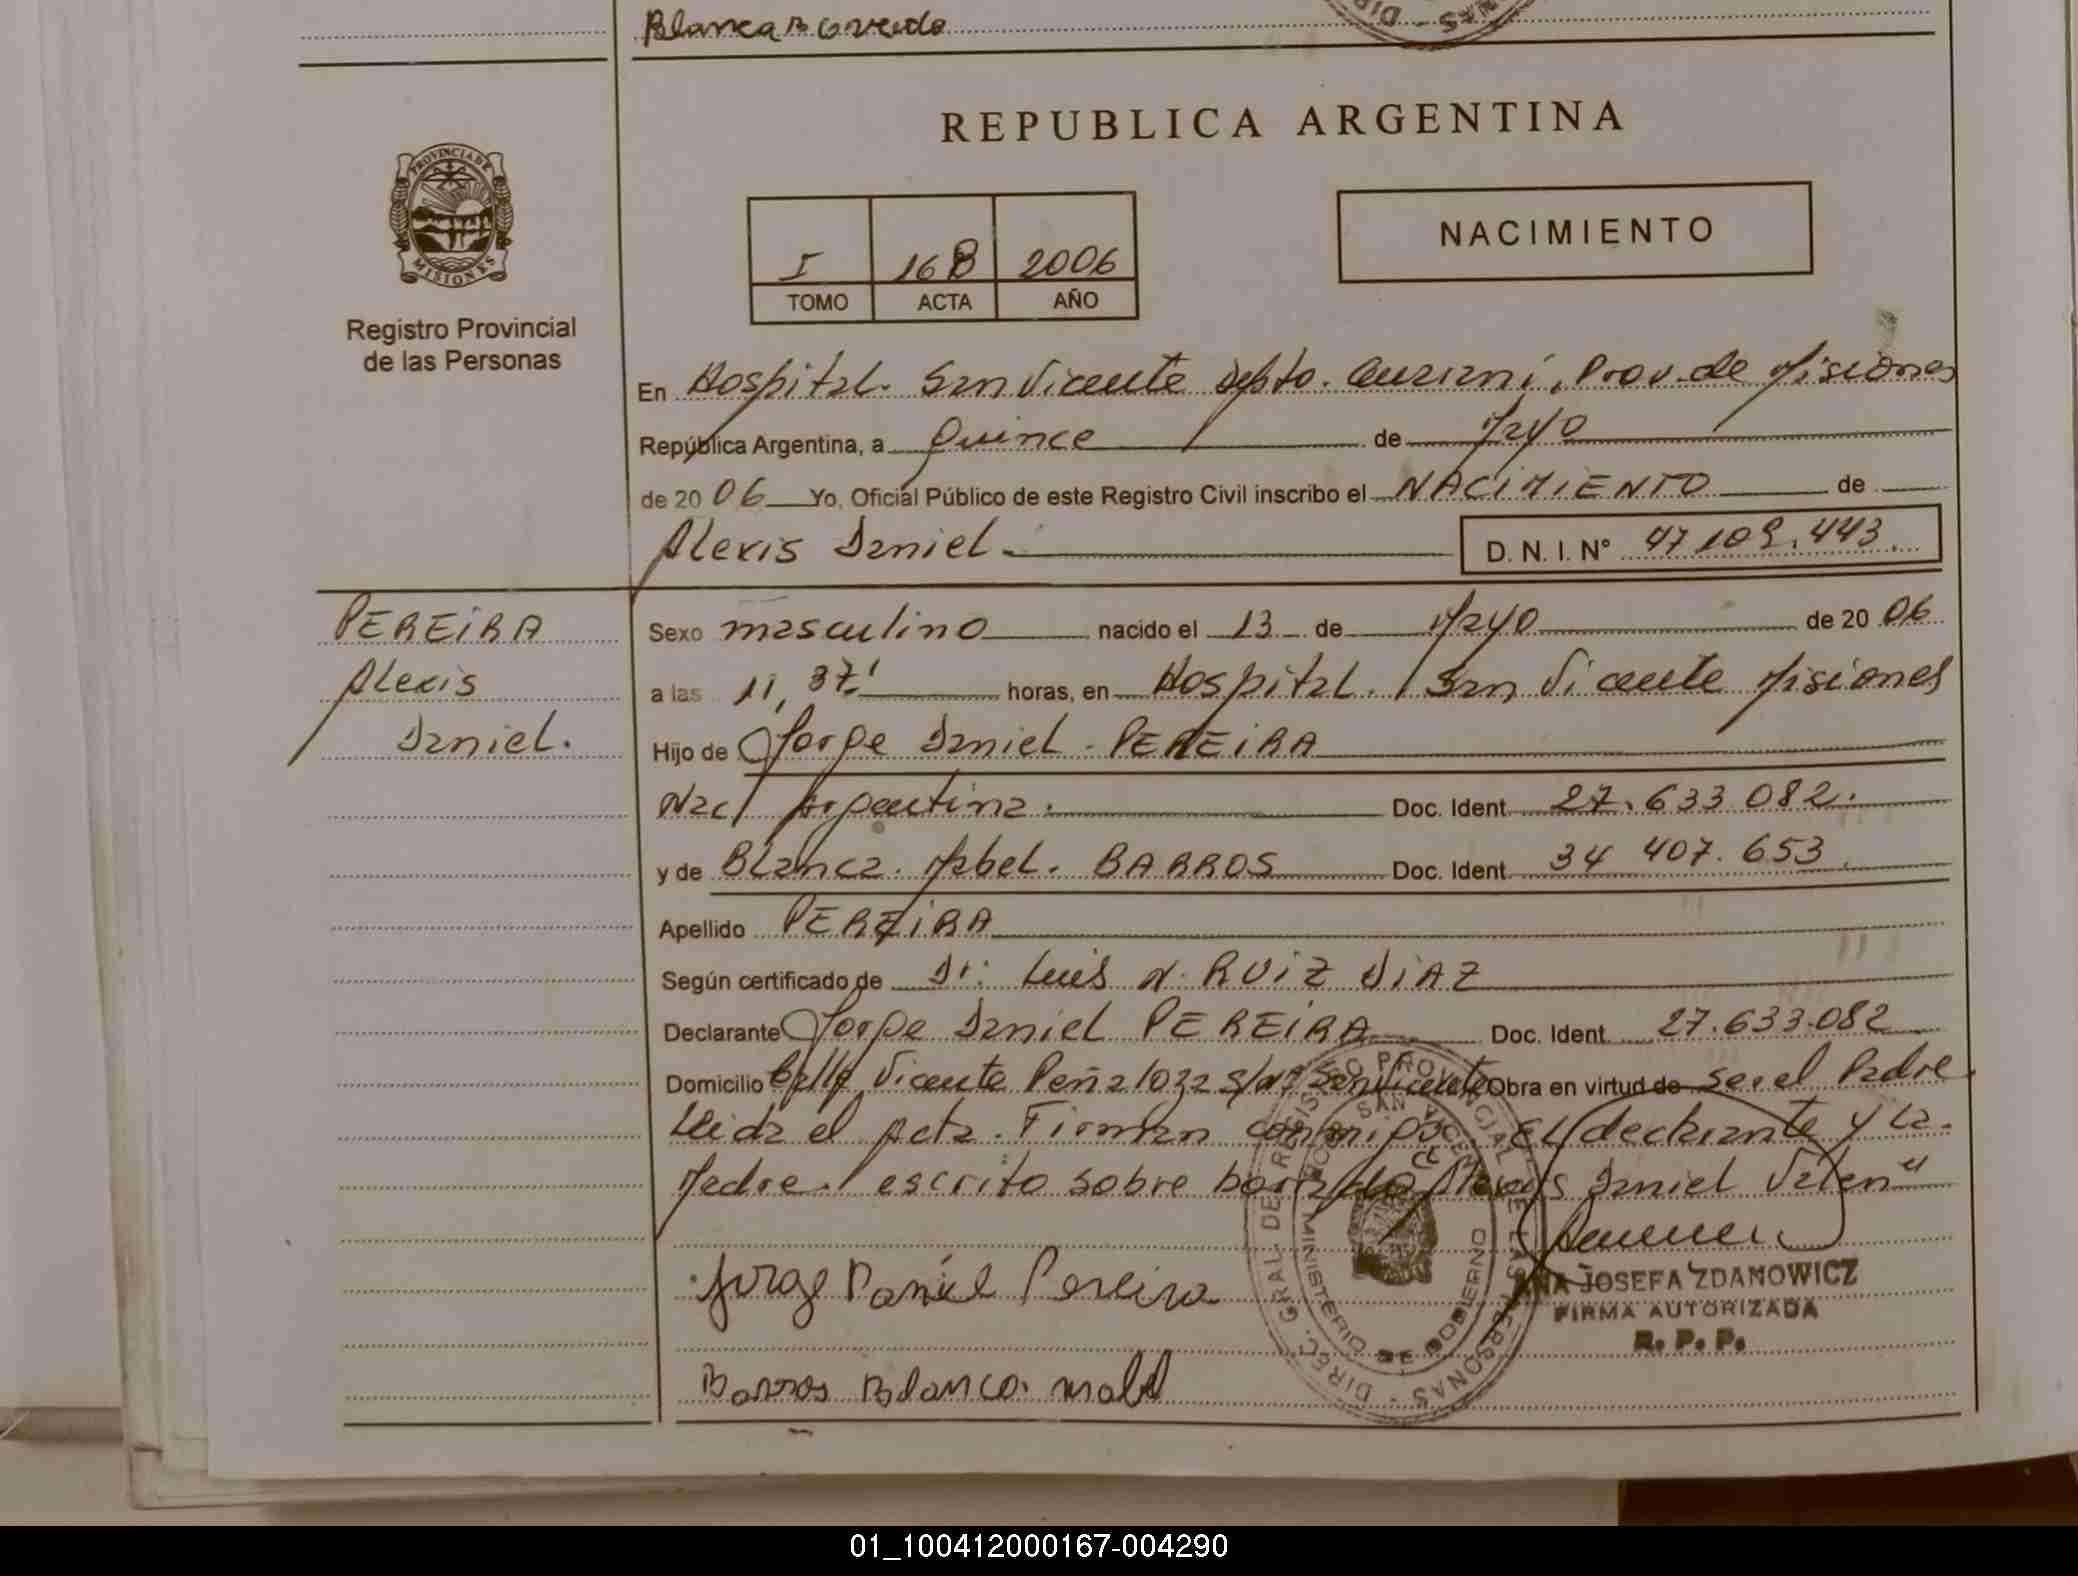 Blanca B Oviedo
PROVINCIA DE
MISIONES
Registro Provincial
de las Personas
REPUBLICA ARGENTINA
I 168 2006
TOMO ACTA AÑO
NACIMIENTO
En Hospital. San Vicente Depto. Guaraní, Prov. de Misiones
República Argentina, a Quince de Mayo
de 20 06 Yo, Oficial Público de este Registro Civil inscribo el NACIMIENTO de
Alexis Daniel
D. N. I. Nº 47 109.443.
PEREIRA
Alexis
Daniel.
Sexo masculino nacido el 13 de Mayo de 20 06
a las 11,37' horas, en Hospital. San Vicente Misiones
Hijo de Jorge Daniel PEREIRA
Nac/ Argentina. Doc. Ident 27.633 082.
y de Blanca. Mabel. BARROS Doc. Ident 34 407.653
Apellido PEREIRA
Según certificado de Dr: Luis N. RUIZ DIAZ
Declarante Jorge Daniel PEREIRA Doc. Ident 27.633.082
Domicilio Calle Vicente Peñaloza s/nº San Vicente Obra en virtud de ser el Padre
Leida el Acta. Firman conmigo. El declarante y la
Madre. escrito sobre borrado Alexis Daniel Valen"
DIREC. GRAL. DE REGISTRO PROVINCIAL DE LAS PERSONAS
MINISTERIO DE GOBIERNO
SAN VICENTE
Jorge Daniel Pereira
ANA JOSEFA ZDANOWICZ
FIRMA AUTORIZADA
R. P. P.
Barros Blanca mabel
01_100412000167-004290